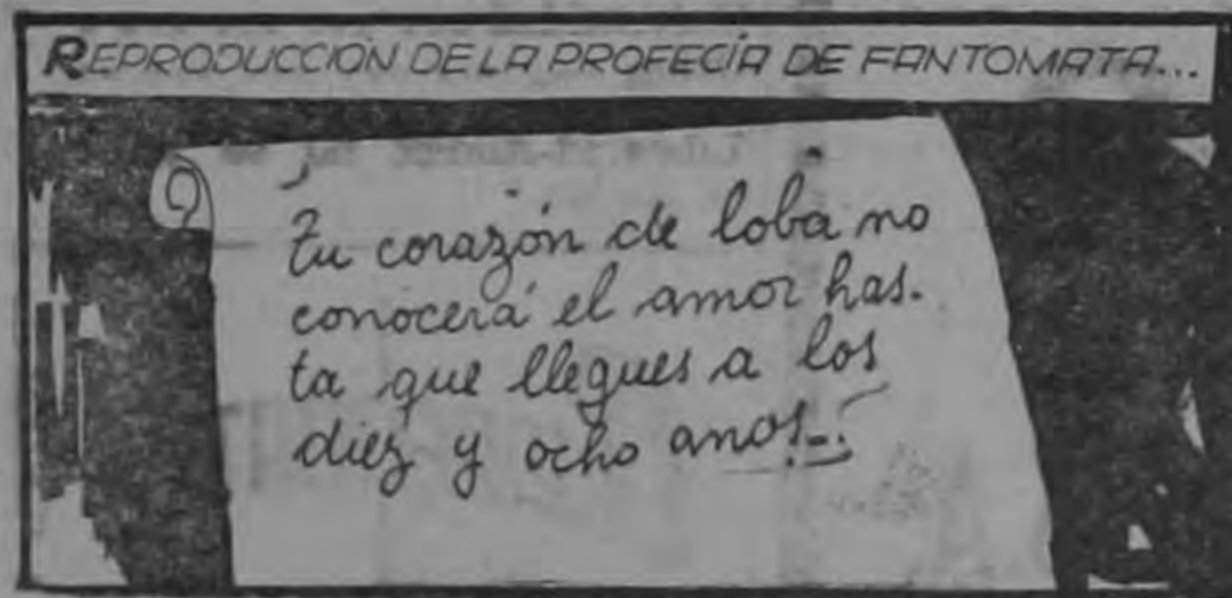 REPRODUCCIÓN DE LA PROFECÍA DE FANTOMATA...
Tu corazón de loba no
conocerá el amor has-
ta que llegues a los
diez y ocho anos...